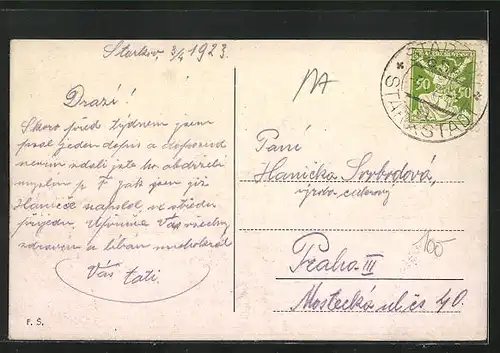 Starkov, 3/4 1923.
Drazí!
Skoro před týdnem jsem
psal jeden dopis a doposud
nevím zdali jste ho obdrželi
myslím p. F. jak jsem již
Haničce napsal, ve středu
přijedu. Upřímně Vás všechny
zdravím a líbám
Váš tati.
F. S.
NA
50 50
STARKOV
STARKSTADT
Paní
Hanička Svobodová,
Praha III
Mostecká ulice 40.
100